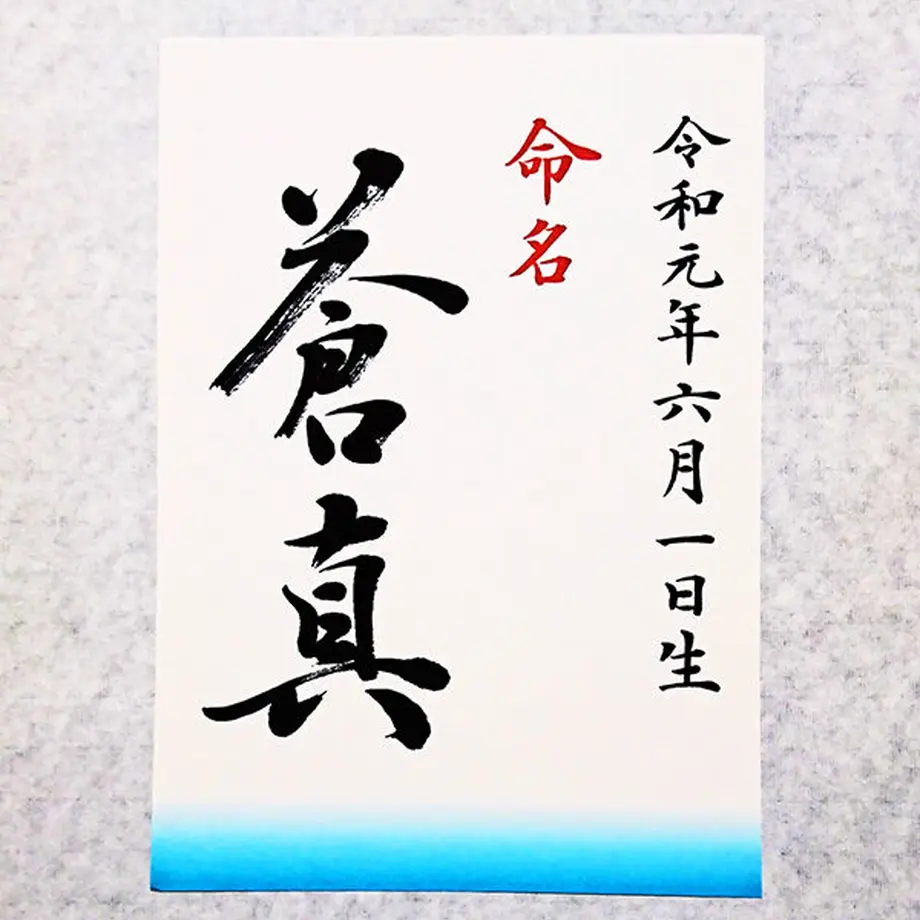 令和元年六月一日生
命名
蒼真